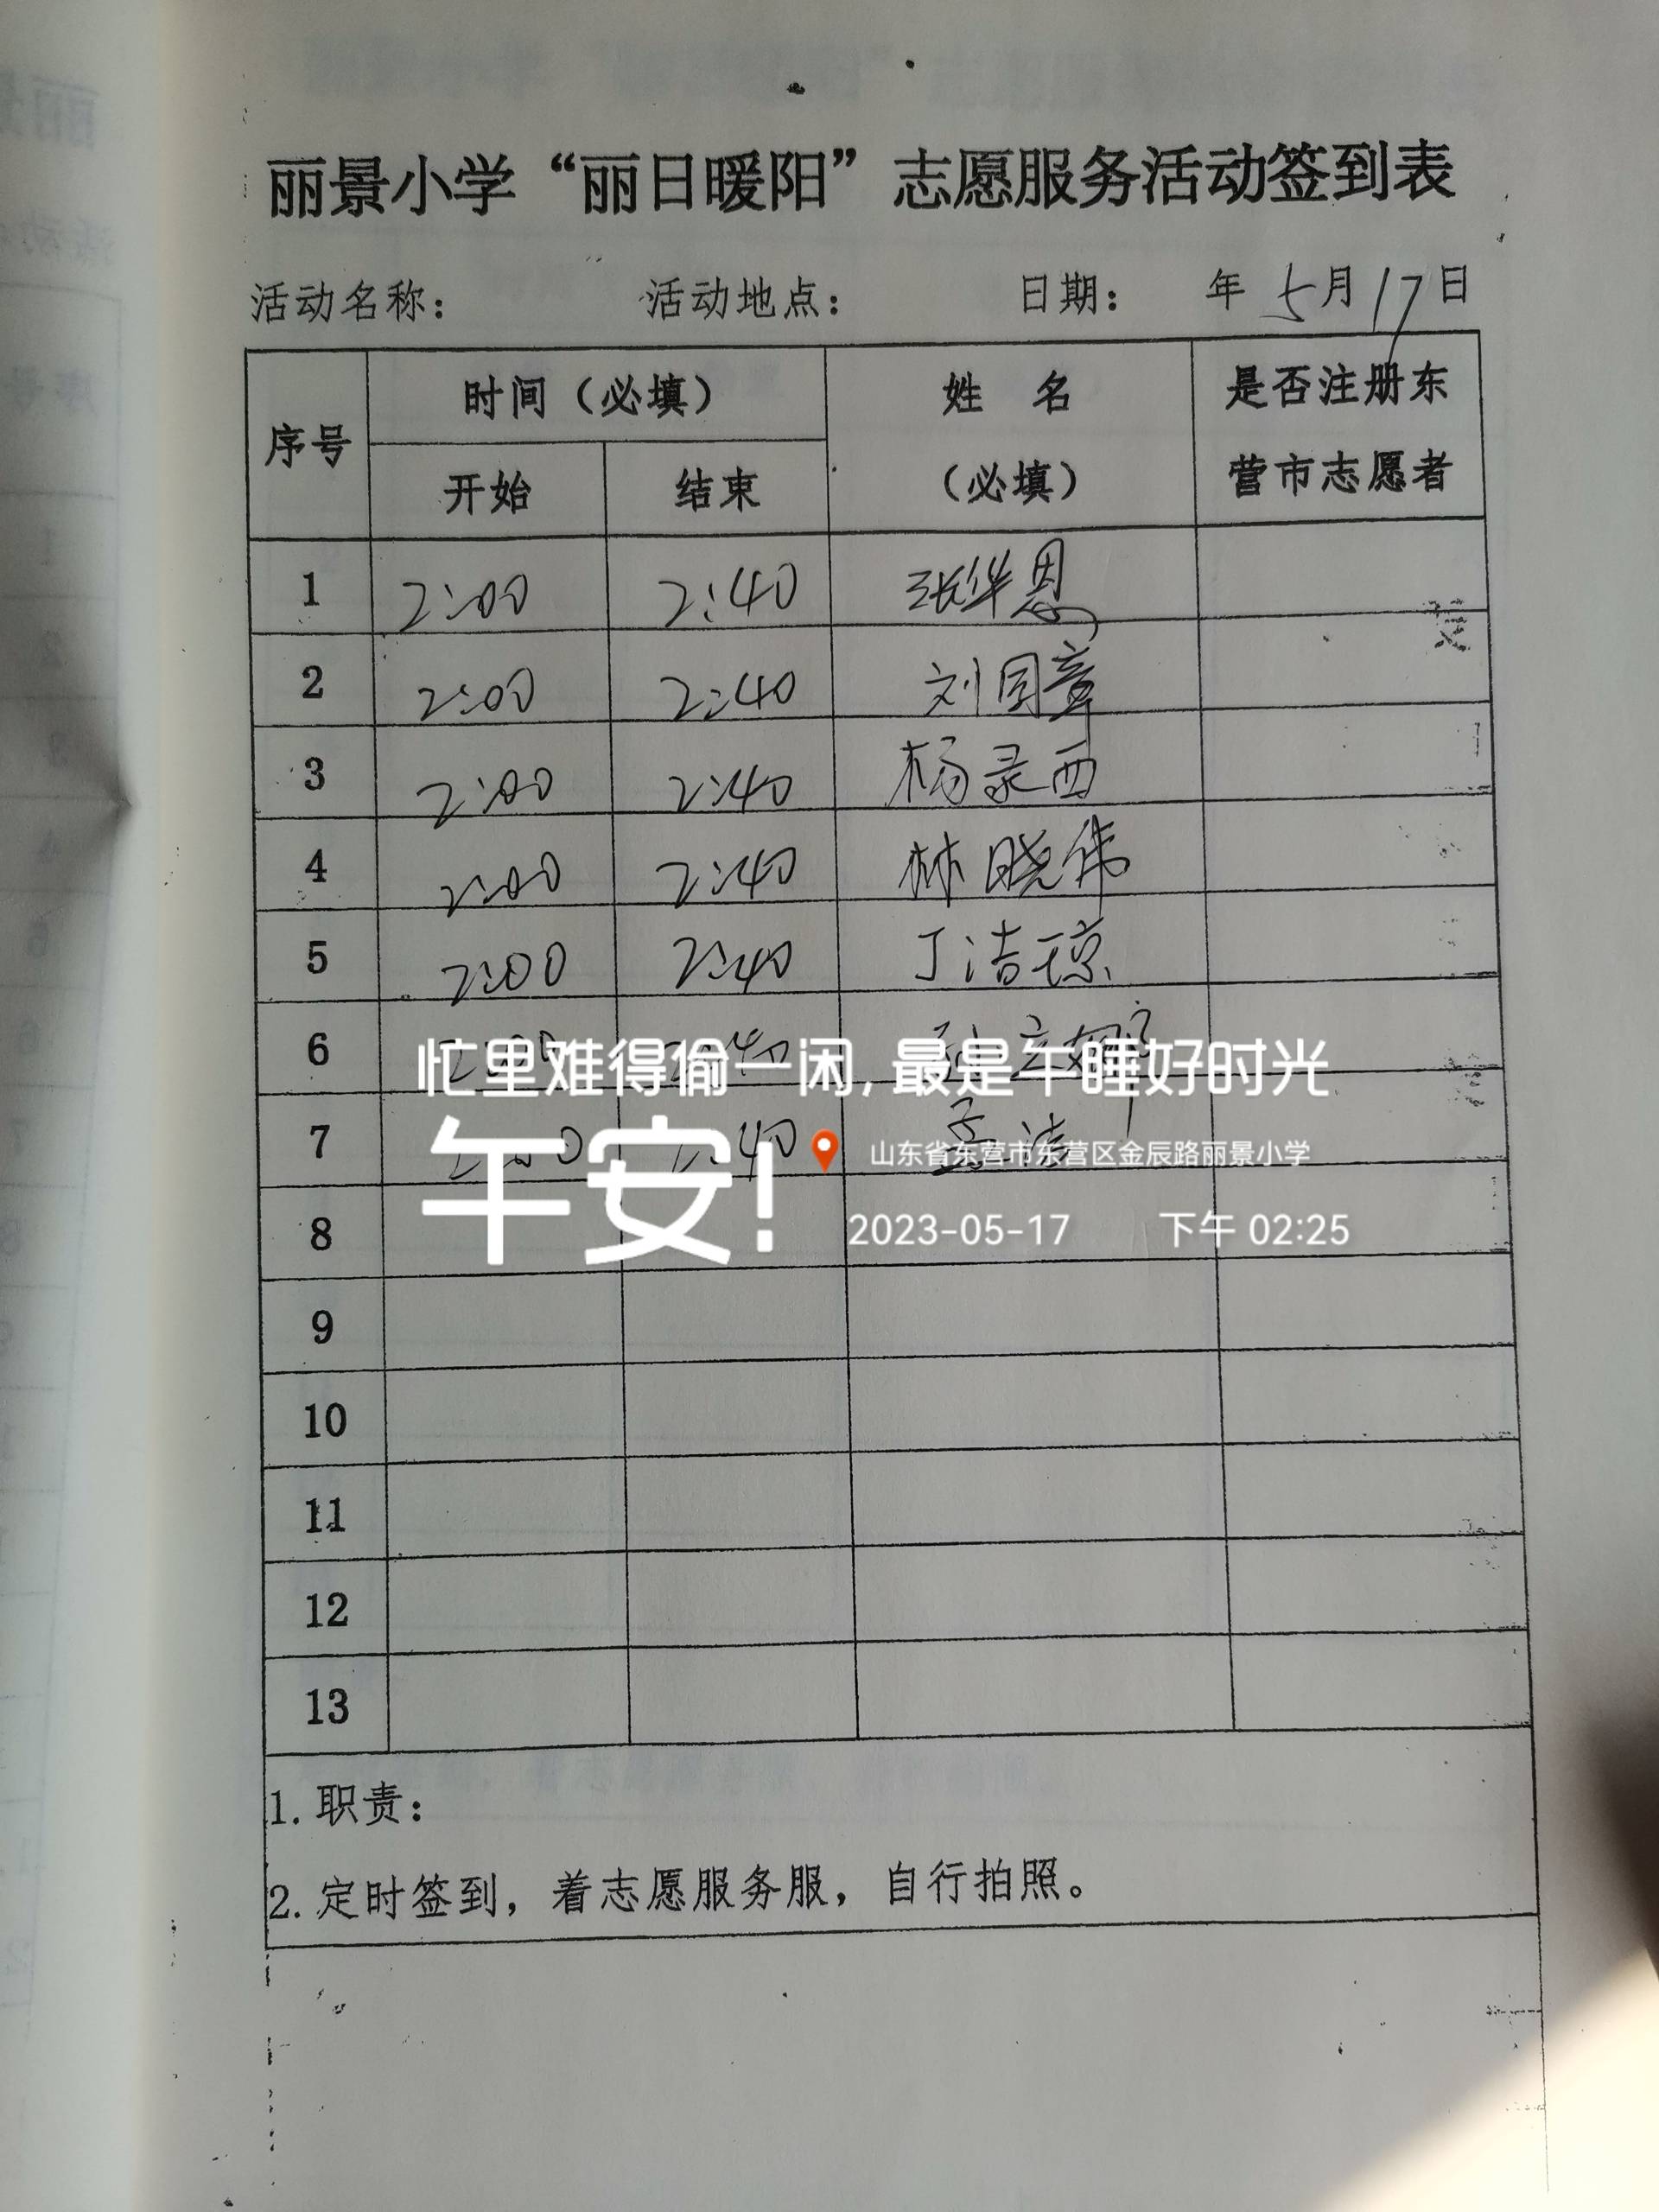 丽景小学“丽日暖阳”志愿服务活动签到表
活动名称： 活动地点： 日期： 年 5月17日
序号 时间（必填） 姓 名（必填） 是否注册东营市志愿者
开始 结束
1 2:00 2:40 张华恩
2 2:00 2:40 刘国章
3 2:00 2:40 杨录西
4 2:00 2:40 林晓伟
5 2:00 2:40 丁洁琼
6 2:00 2:40
忙里难得偷一闲，最是午睡好时光
7 2:00 2:40 孟洁
午安！
山东省东营市东营区金辰路丽景小学
2023-05-17 下午 02:25
8
9
10
11
12
13
1. 职责：
2. 定时签到，着志愿服务服，自行拍照。